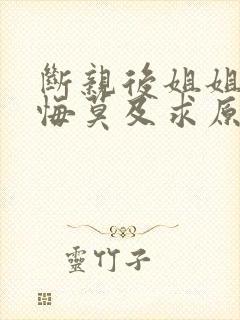 斷親後姐姐
悔莫及求原
靈竹子